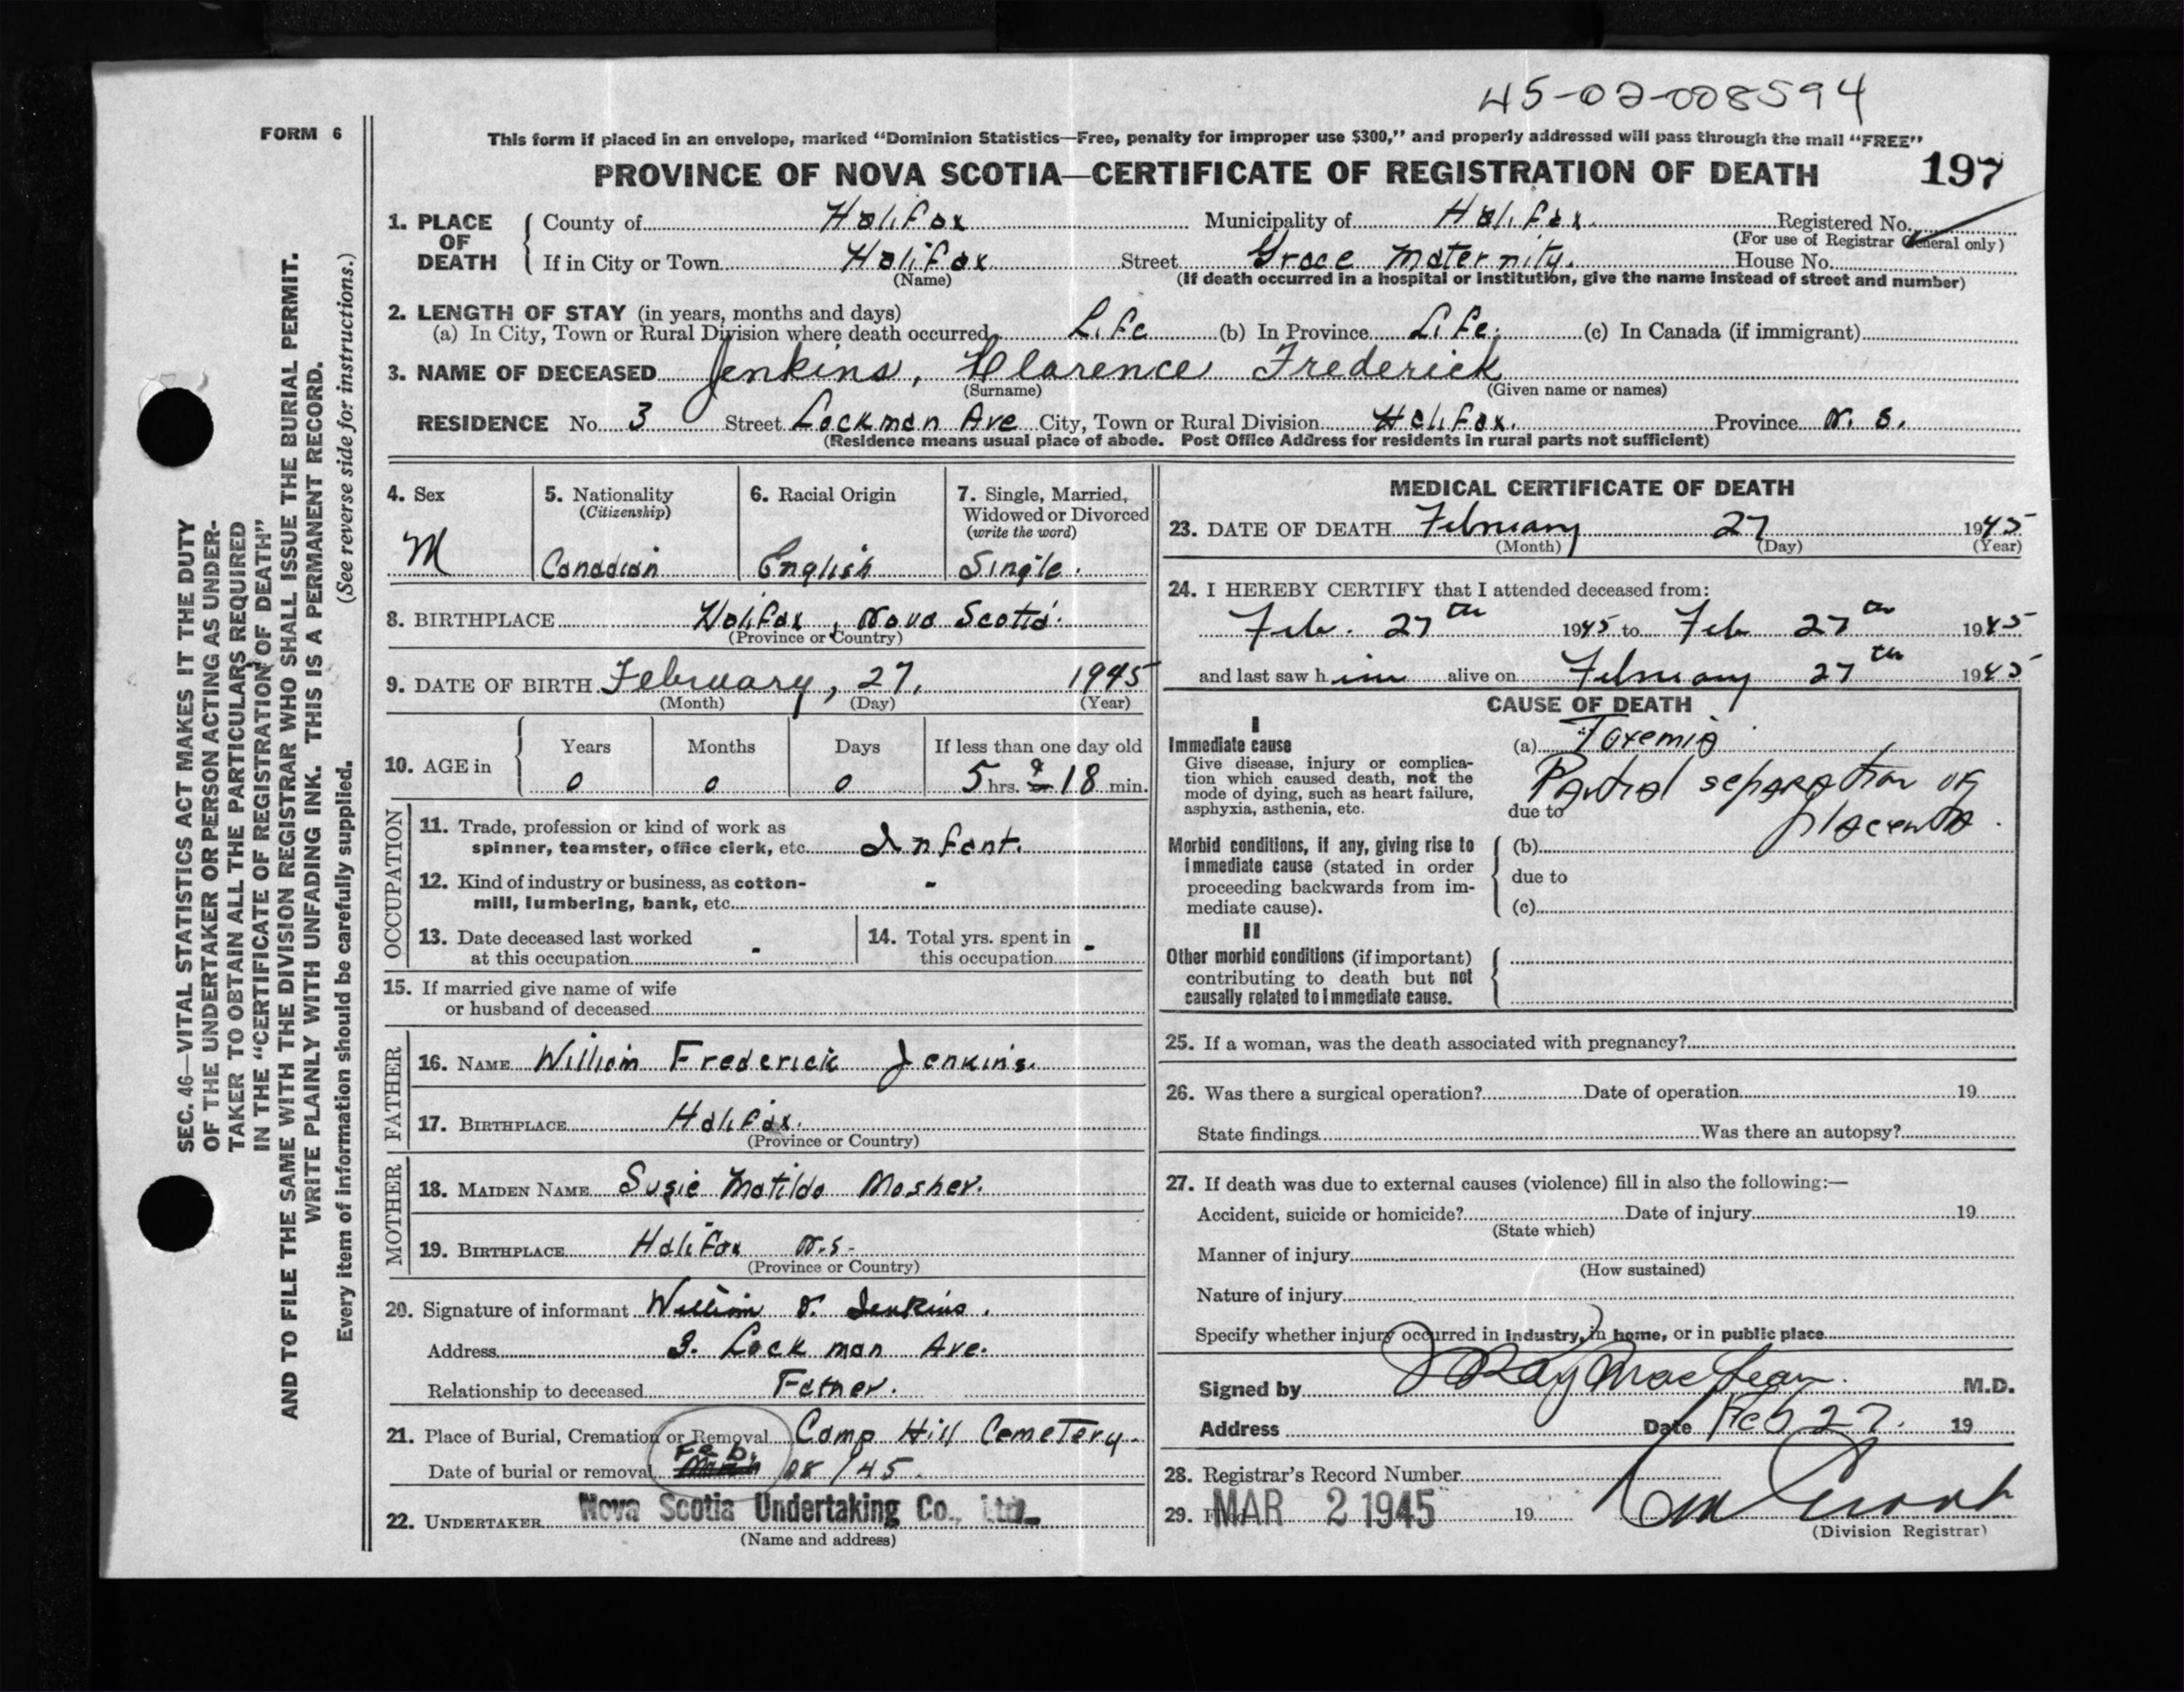 45-02-008594
FORM 6
This form if placed in an envelope, marked “Dominion Statistics—Free, penalty for improper use $300,” and properly addressed will pass through the mail “FREE”
PROVINCE OF NOVA SCOTIA—CERTIFICATE OF REGISTRATION OF DEATH 197
1. PLACE OF DEATH { County of Halifax Municipality of Halifax. Registered No.
(For use of Registrar General only)
If in City or Town Halifax Street Grace Maternity. House No.
(Name) (If death occurred in a hospital or institution, give the name instead of street and number)
2. LENGTH OF STAY (in years, months and days)
(a) In City, Town or Rural Division where death occurred Life (b) In Province Life. (c) In Canada (if immigrant)
3. NAME OF DECEASED Jenkins, Clarence Frederick
(Surname) (Given name or names)
RESIDENCE No. 3 Street Lockman Ave City, Town or Rural Division Halifax. Province N. S.
(Residence means usual place of abode. Post Office Address for residents in rural parts not sufficient)
4. Sex 5. Nationality 6. Racial Origin 7. Single, Married,
(Citizenship) Widowed or Divorced
(write the word)
M Canadian English Single.
8. BIRTHPLACE Halifax, Nova Scotia.
(Province or Country)
9. DATE OF BIRTH February, 27, 1945
(Month) (Day) (Year)
10. AGE in { Years Months Days If less than one day old
0 0 0 5 hrs. 18 min.
OCCUPATION
11. Trade, profession or kind of work as
spinner, teamster, office clerk, etc. Infant.
12. Kind of industry or business, as cotton-
mill, lumbering, bank, etc. -
13. Date deceased last worked 14. Total yrs. spent in
at this occupation - this occupation -
15. If married give name of wife
or husband of deceased
FATHER
16. NAME William Frederick Jenkins.
17. BIRTHPLACE Halifax.
(Province or Country)
MOTHER
18. MAIDEN NAME Susie Matilda Mosher.
19. BIRTHPLACE Halifax N.S.
(Province or Country)
20. Signature of informant William F. Jenkins.
Address 3. Lockman Ave.
Relationship to deceased Father.
21. Place of Burial, Cremation or Removal Camp Hill Cemetery.
Feb.
Date of burial or removal March 28/45.
22. UNDERTAKER Nova Scotia Undertaking Co., Ltd.
(Name and address)
MEDICAL CERTIFICATE OF DEATH
23. DATE OF DEATH February 27 1945
(Month) (Day) (Year)
24. I HEREBY CERTIFY that I attended deceased from:
Feb. 27th 1945 to Feb 27th 1945
and last saw him alive on February 27th 1945
CAUSE OF DEATH
I
Immediate cause (a) Toxemia
Give disease, injury or complica-
tion which caused death, not the
mode of dying, such as heart failure,
asphyxia, asthenia, etc.
due to Partial separation of
placenta.
Morbid conditions, if any, giving rise to (b)
immediate cause (stated in order due to
proceeding backwards from im-
mediate cause). (c)
II
Other morbid conditions (if important)
contributing to death but not
causally related to immediate cause.
25. If a woman, was the death associated with pregnancy?
26. Was there a surgical operation? Date of operation 19
State findings Was there an autopsy?
27. If death was due to external causes (violence) fill in also the following:—
Accident, suicide or homicide? Date of injury 19
(State which)
Manner of injury
(How sustained)
Nature of injury
Specify whether injury occurred in industry, in home, or in public place
Signed by J Ray MacLean. M.D.
Address Date Feb 27. 19
28. Registrar's Record Number
29. Filed MAR 2 1945 19
(Division Registrar)
SEC. 46—VITAL STATISTICS ACT MAKES IT THE DUTY
OF THE UNDERTAKER OR PERSON ACTING AS UNDER-
TAKER TO OBTAIN ALL THE PARTICULARS REQUIRED
IN THE “CERTIFICATE OF REGISTRATION OF DEATH”
AND TO FILE THE SAME WITH THE DIVISION REGISTRAR WHO SHALL ISSUE THE BURIAL PERMIT.
WRITE PLAINLY WITH UNFADING INK. THIS IS A PERMANENT RECORD.
Every item of information should be carefully supplied. (See reverse side for instructions.)